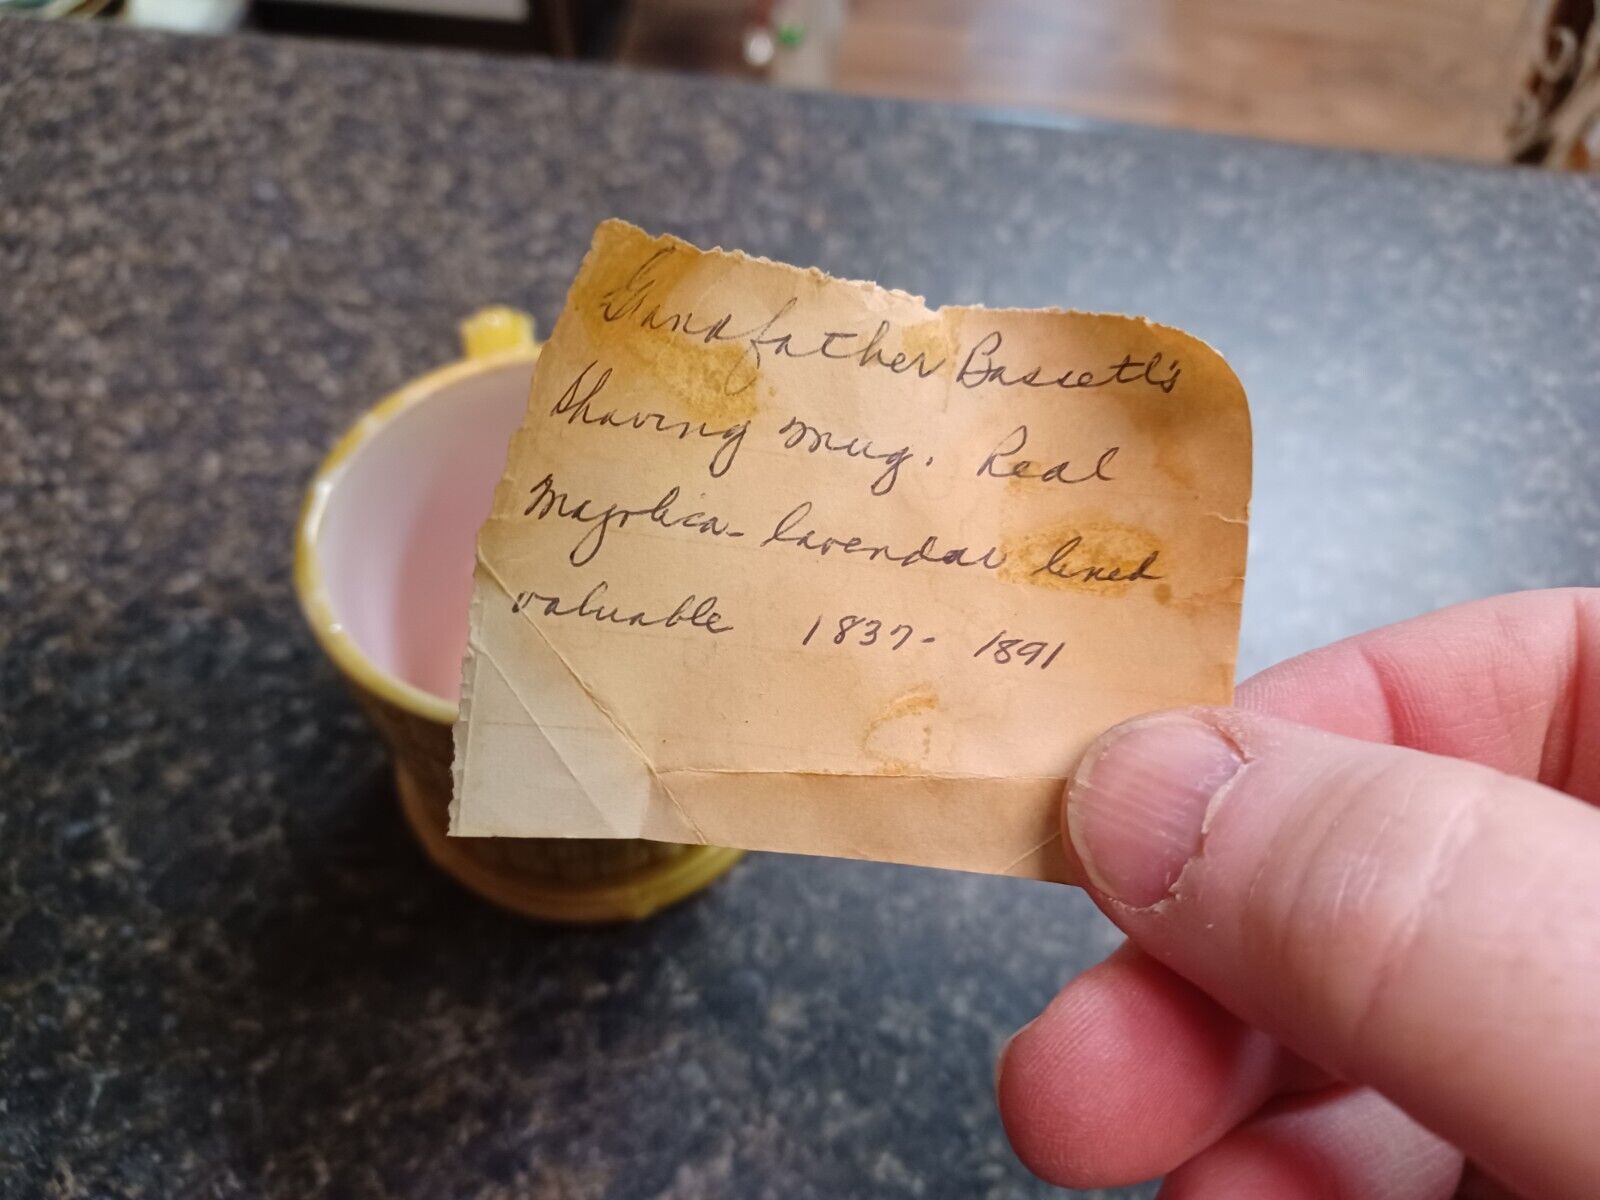 Grandfather Bassett's
Shaving mug. Real
Majolica - lavendar lined
valuable 1837 - 1891